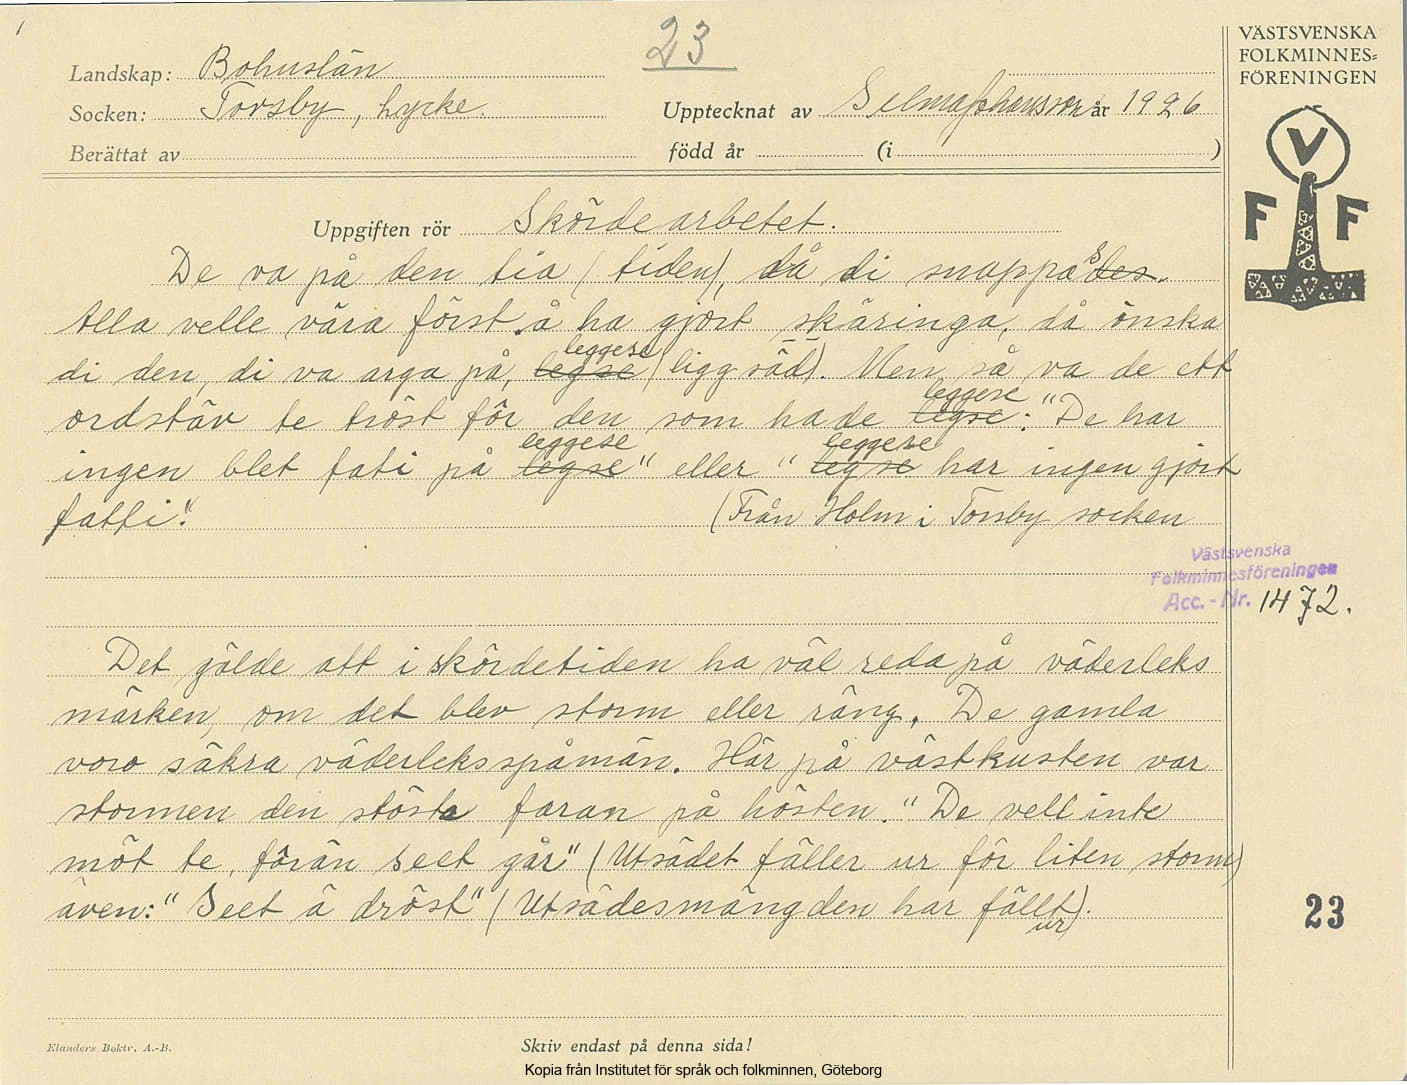 23
VÄSTSVENSKA
FOLKMINNES=
FÖRENINGEN
Landskap: Bohuslän
Socken: Torsby, Lycke. Upptecknat av Selma Johansson år 1926
Berättat av född år (i )
V
F F
Uppgiften rör Skördearbetet.
De va på den tia (tiden), då di snappades.
Alla velle vära först å ha gjort skäringa, då önska
di den, di va arga på, legse leggese (liggsäd). Men så va de ett
ordstäv te tröst för den som hade legse leggese: "De har
ingen blet fati på legse leggese" eller "legse leggese har ingen gjort
fatti".
(Från Holm i Torsby socken
Västsvenska
Folkminnesföreningen
Acc.-Nr. 1472.
Det gälde att i skördetiden ha väl reda på väderleks
märken, om det blev storm eller räng. De gamla
voro säkra väderleksspåmän. Här på västkusten var
stormen den störste faran på hösten. "De vell inte
möt te, förän seet går" (Utsädet fäller ur för liten storm)
även: "Seet ä dröst" (Utsädesmängden har fällt ur).
23
Elanders Boktr. A.-B.
Skriv endast på denna sida!
Kopia från Institutet för språk och folkminnen, Göteborg